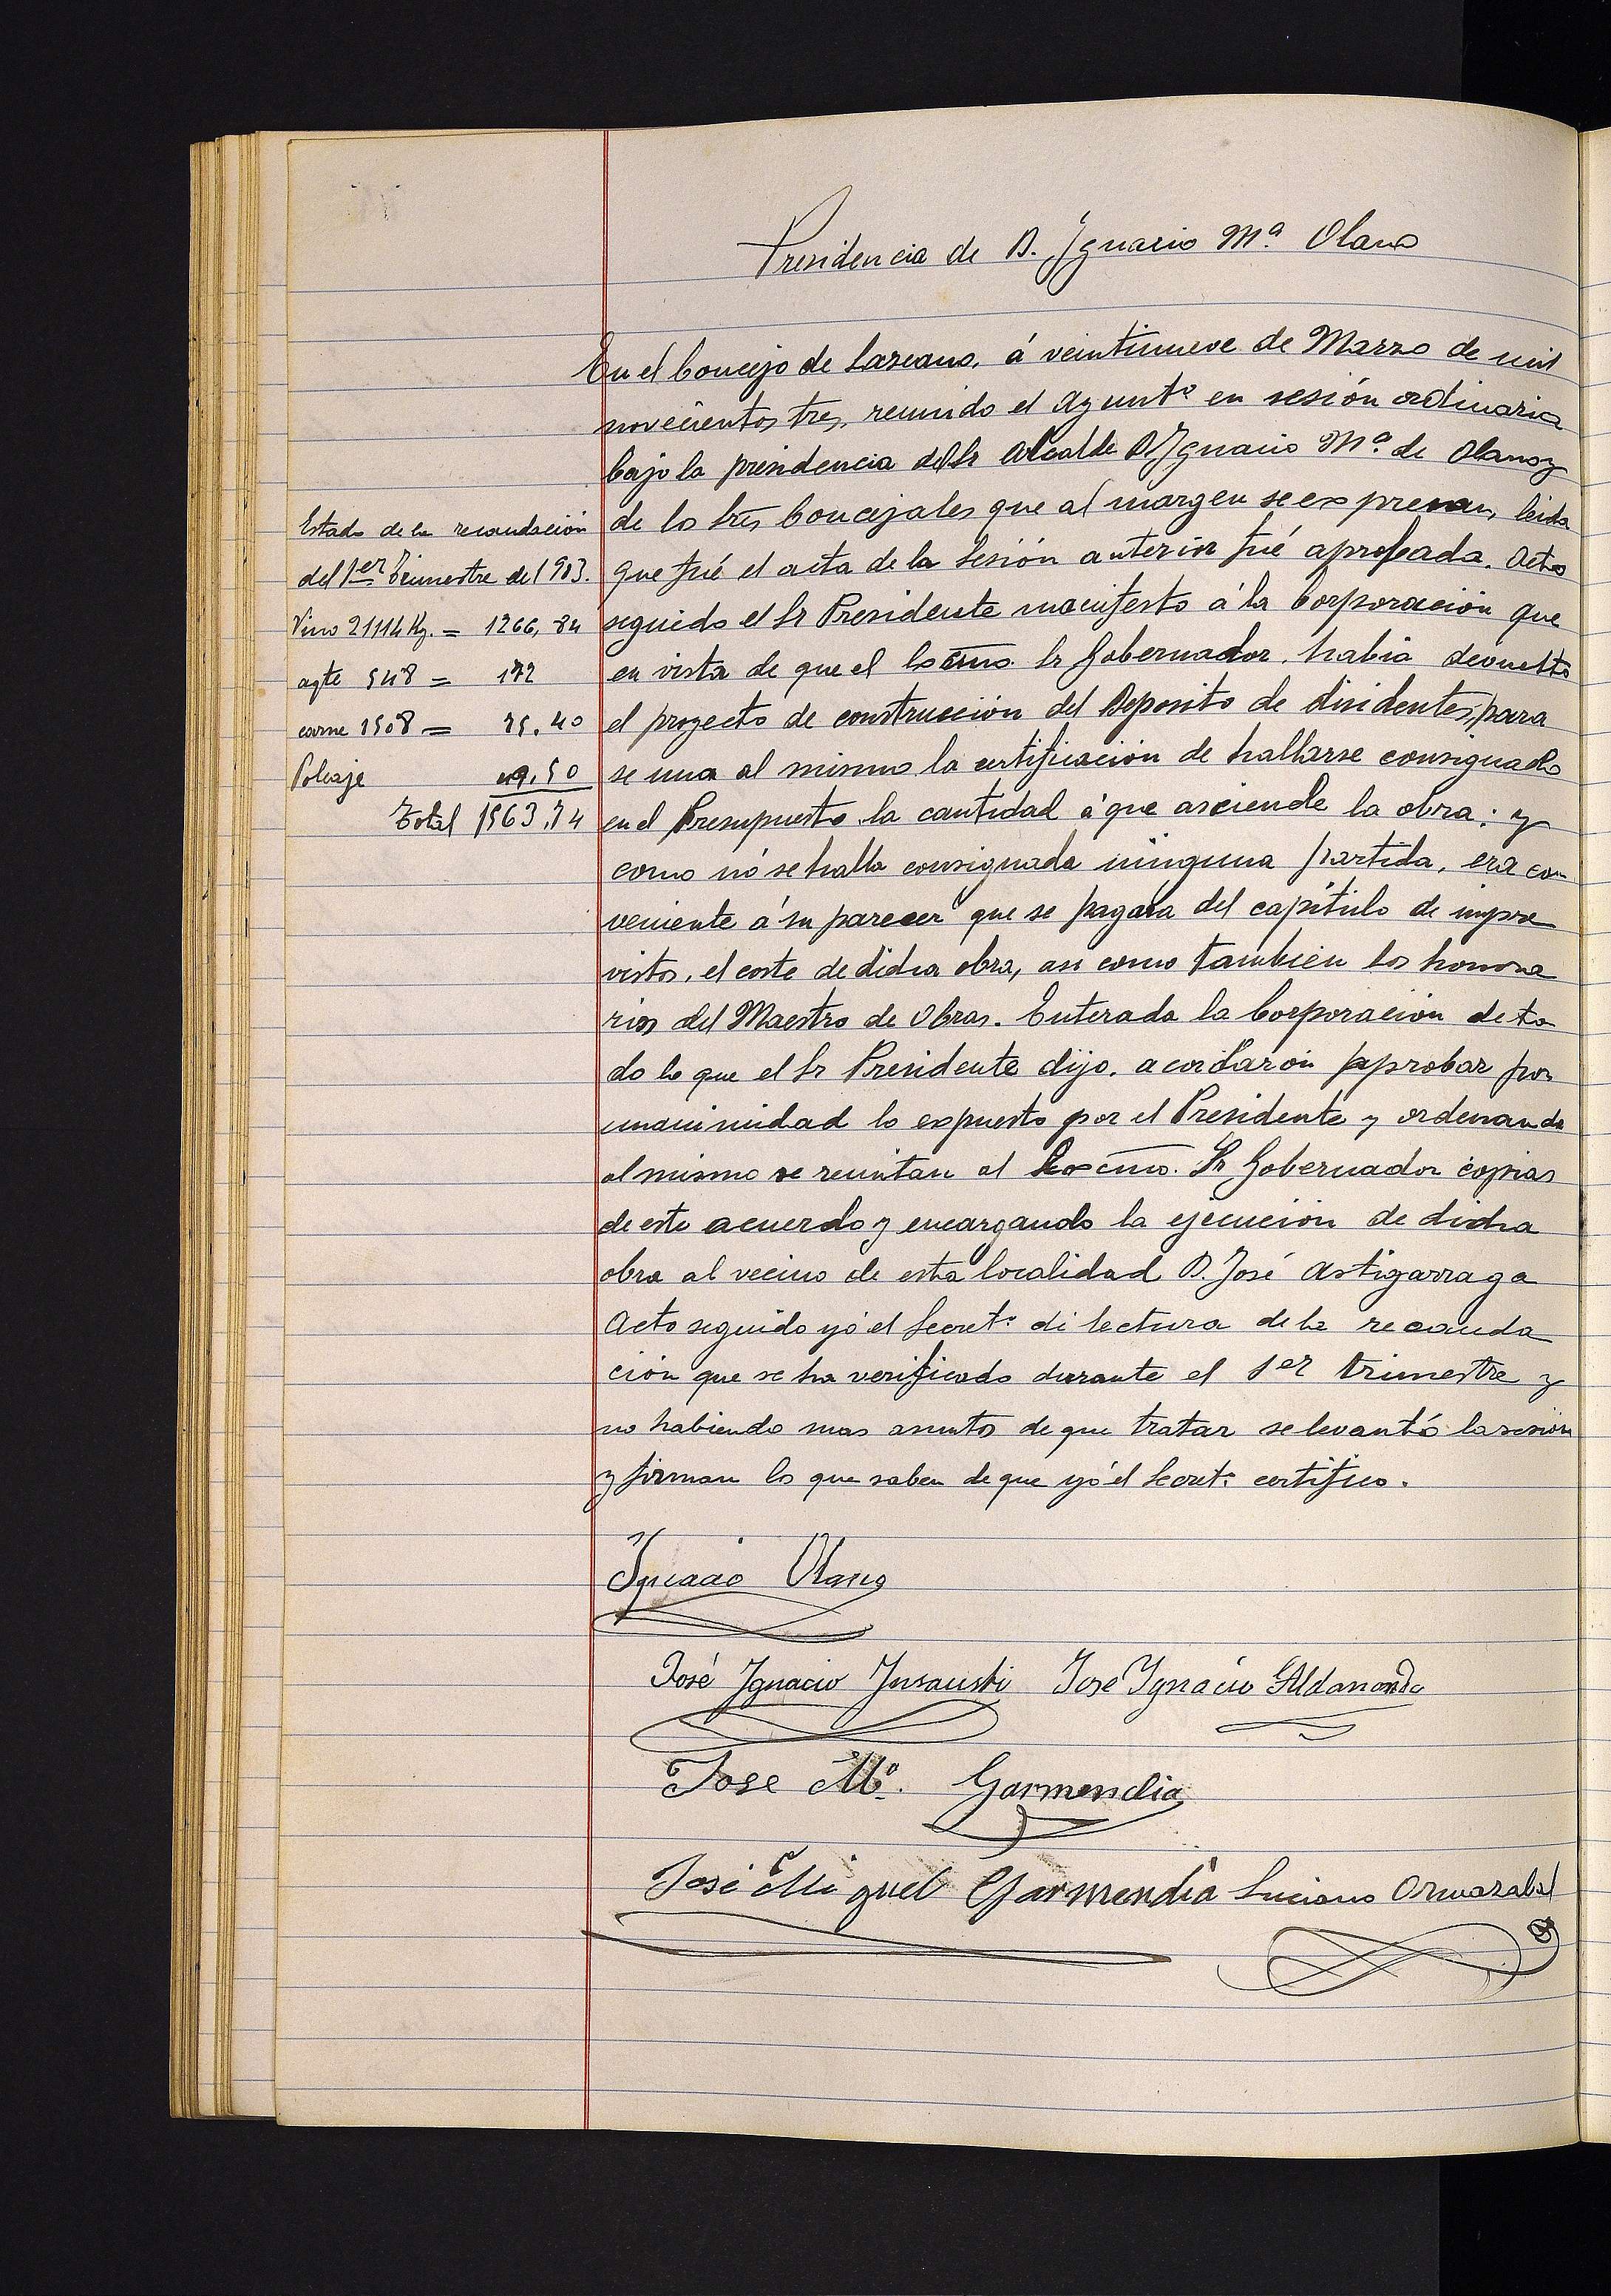 Presidencia de D. Ignacio Mª Olano
En el Concejo de Lazcano, á veintinueve de Marzo de mil
novecientos tres, reunido el Ayuntº en sesión ordinaria
bajo la presidencia del Sr Alcalde D Ignacio Mª de Olano y
de lo Sres Concejales que al margen se expresan, leida
que fué el acta de la Sesión anterior fué aprobada. Acto
seguido el Sr Presidente manifestó á la Corporación que
en vista de que el Excmo. Sr Gobernador, habia devuelto
el proyecto de construcción del Deposito de disidentes, para
se una al mismo la certificación de hallarse consignado
en el Presupuesto la cantidad á que asciende la obra; y
como nó se halla consignada ninguna partida, era con
veniente á su parecer que se pagara del capítulo de impre
vistos, el coste de dicha obra, asi como también los honora
rios del Maestro de Obras. Enterada la Corporación de to
do lo que el Sr Presidente dijo, acordaron aprobar por
unanimidad lo expuesto por el Presidente y ordenando
al mismo se remitan al Excmo. Sr Gobernador copias
de este acuerdo y encargando la ejecución de dicha
obra al vecino de esta localidad D. José Astigarraga
Acto seguido yó el Secretº di lectura de la recauda
ción que se ha verificado durante el 1er trimestre y
no habiendo mas asuntos de que tratar se levantó la sesión
y firman lo que saben de que yó el Secretº certifico.
Estado de la recaudación
del 1er Trimestre del 903.
Vino 21114 Kg. = 1266,84
agte 548 = 172
carne 1508 = 75.40
Poleaje 49.50
Total 1563.74
Ignacio Olano
José Ignacio Insausti José Ignacio Aldanondo
Jose Mª. Garmendia
José Miguel Garmendia Luciano Ormazabal